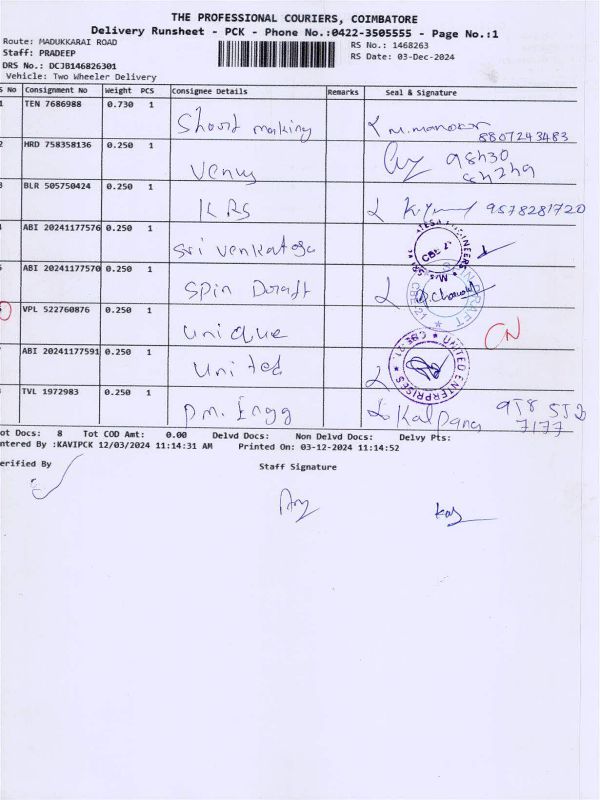 THE PROFESSIONAL COURIERS, COIMBATORE
Delivery Runsheet - PCK - Phone No.:0422-3505555 - Page No.:1
Route: MADUKKARAI ROAD
RS No.: 1468263
Staff: PRADEEP
RS Date: 03-Dec-2024
DRS No.: DCJB146826301
Vehicle: Two Wheeler Delivery
S No Consignment No Weight PCS Consignee Details Remarks Seal & Signature
1 TEN 7686988 0.730 1 making M. manoxor 8807243483
2 HRD 758358136 0.250 1 Venus
3 BLR 505750424 0.250 1 KRS 9578281720
4 ABI 20241177576 0.250 1 Sri Venkatesa
5 ABI 20241177570 0.250 1 Spin Draft
VPL 522760876 0.250 1 unique CN
7 ABI 20241177591 0.250 1 United UNITED ENTERPRISES CBE-21
TVL 1972983 0.250 1 P.M. Engg Kalpana
ot Docs: 8 Tot COD Amt: 0.00 Delvd Docs: Non Delvd Docs: Delvy Pts:
ntered By :KAVIPCK 12/03/2024 11:14:31 AM Printed On: 03-12-2024 11:14:52
erified By
Staff Signature